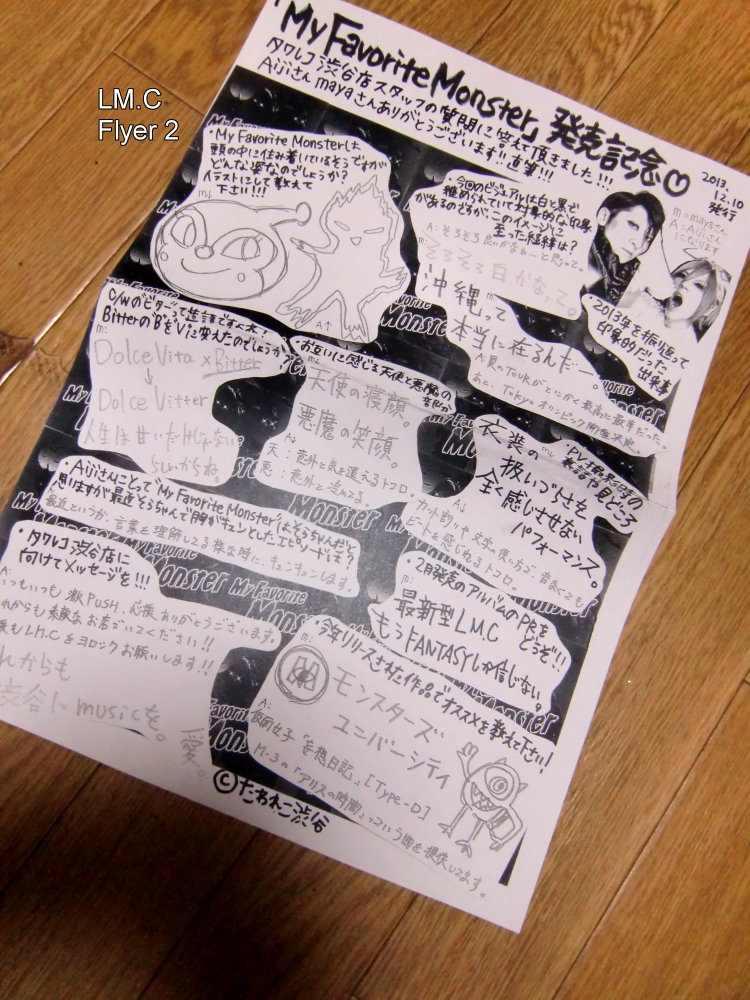 LM.C
Flyer 2
「My Favorite Monster」発売記念♡
タワレコ渋谷店スタッフの質問に答えて頂きました!!!
Aijiさん mayaさんありがとうございます!! 直筆!!!
2013.
12.10
発行
m=mayaさん
A=Aijiさん
になります
・My Favorite Monsterは
頭の中に住み着いているそうですが
どんな姿なのでしょうか?
イラストにして教えて
下さい!!!
m↓
A↑
・今回のビジュアルは白と黒で
纏められていて対象的な印象
があるのですが、このイメージに
至った経緯は?
A:そろそろ良いかなぁ…と思って。
m:
そろそろ白かなって。
・2013年を振り返って
印象的だった
出来事
m:
沖縄って
本当に在るんだー。
A:夏のTourがとにかく最高に最幸だった。
あと、Tokyoオリンピック開催決定。
c/wのビターって造語ですよね?
Bitterの"B"を"V"に変えたのでしょうか?
m:
Dolce Vita × Bitter
↓
Dolce Vitter
人生は甘いだけじゃない
らしいからね。
・お互いに感じる天使と悪魔の
部分
m↓
天使の寝顔
悪魔の笑顔。
A↓
天:意外と気を遣えるトコロ。
悪:意外と
・PV
見どころ
衣装の
扱いづらさを
全く感じさせない
パフォーマンス。
A↓
カット割りや文字の使い方で、音無くても
ビートを感じれるトコロ。
・Aijiさんにとって"My Favorite Monster"はそらちゃんだと
思いますが最近そらちゃんで胸がキュンとしたエピソードは?
最近というか、言葉を理解してる様な時に、キュンキュンします。
・2月発売のアルバムのPRを
どうぞ!!
m:
最新型LM.C
もうFANTASYしか信じない。
・タワレコ渋谷店に
向けてメッセージを!!!
A:
いつもいつも激PUSH、応援ありがとうございます。
これからも素敵なお店でいてください!!
今後もLM.Cをヨロシクお願いします!!
これからも
渋谷にmusicを。
・今年リリースされた作品でオススメを教えて下さい!
m:
モンスターズ
ユニバーシティ
A:
仮面女子「妄想日記」[Type-D]
M-3の「アリスの時間」っていう曲を提供してます。
©たわれこ渋谷